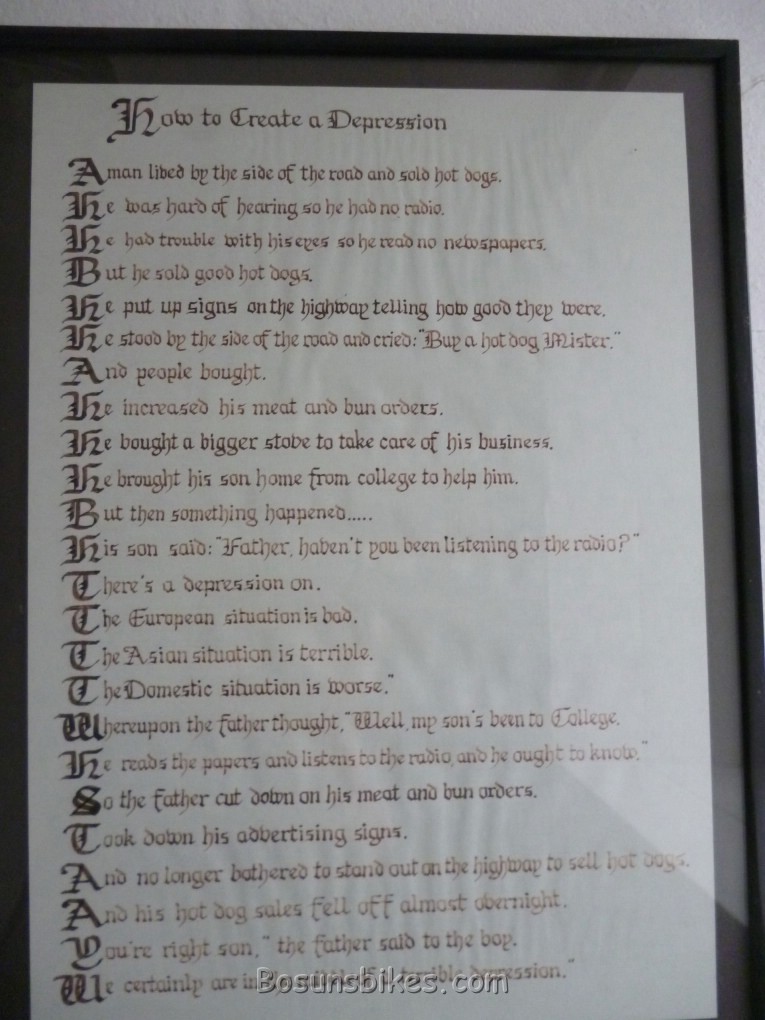 How to Create a Depression
A man lived by the side of the road and sold hot dogs.
He was hard of hearing so he had no radio.
He had trouble with his eyes so he read no newspapers.
But he sold good hot dogs.
He put up signs on the highway telling how good they were.
He stood by the side of the road and cried: "Buy a hot dog Mister."
And people bought.
He increased his meat and bun orders.
He bought a bigger stove to take care of his business.
He brought his son home from college to help him.
But then something happened.....
His son said: "Father, haven't you been listening to the radio?"
There's a depression on.
The European situation is bad.
The Asian situation is terrible.
The Domestic situation is worse."
Whereupon the father thought, "Well, my son's been to College.
He reads the papers and listens to the radio, and he ought to know."
So the father cut down on his meat and bun orders.
Took down his advertising signs.
And no longer bothered to stand out on the highway to sell hot dogs.
And his hot dog sales fell off almost overnight.
You're right son," the father said to the boy.
We certainly are in terrible depression."
Bosunsbikes.com